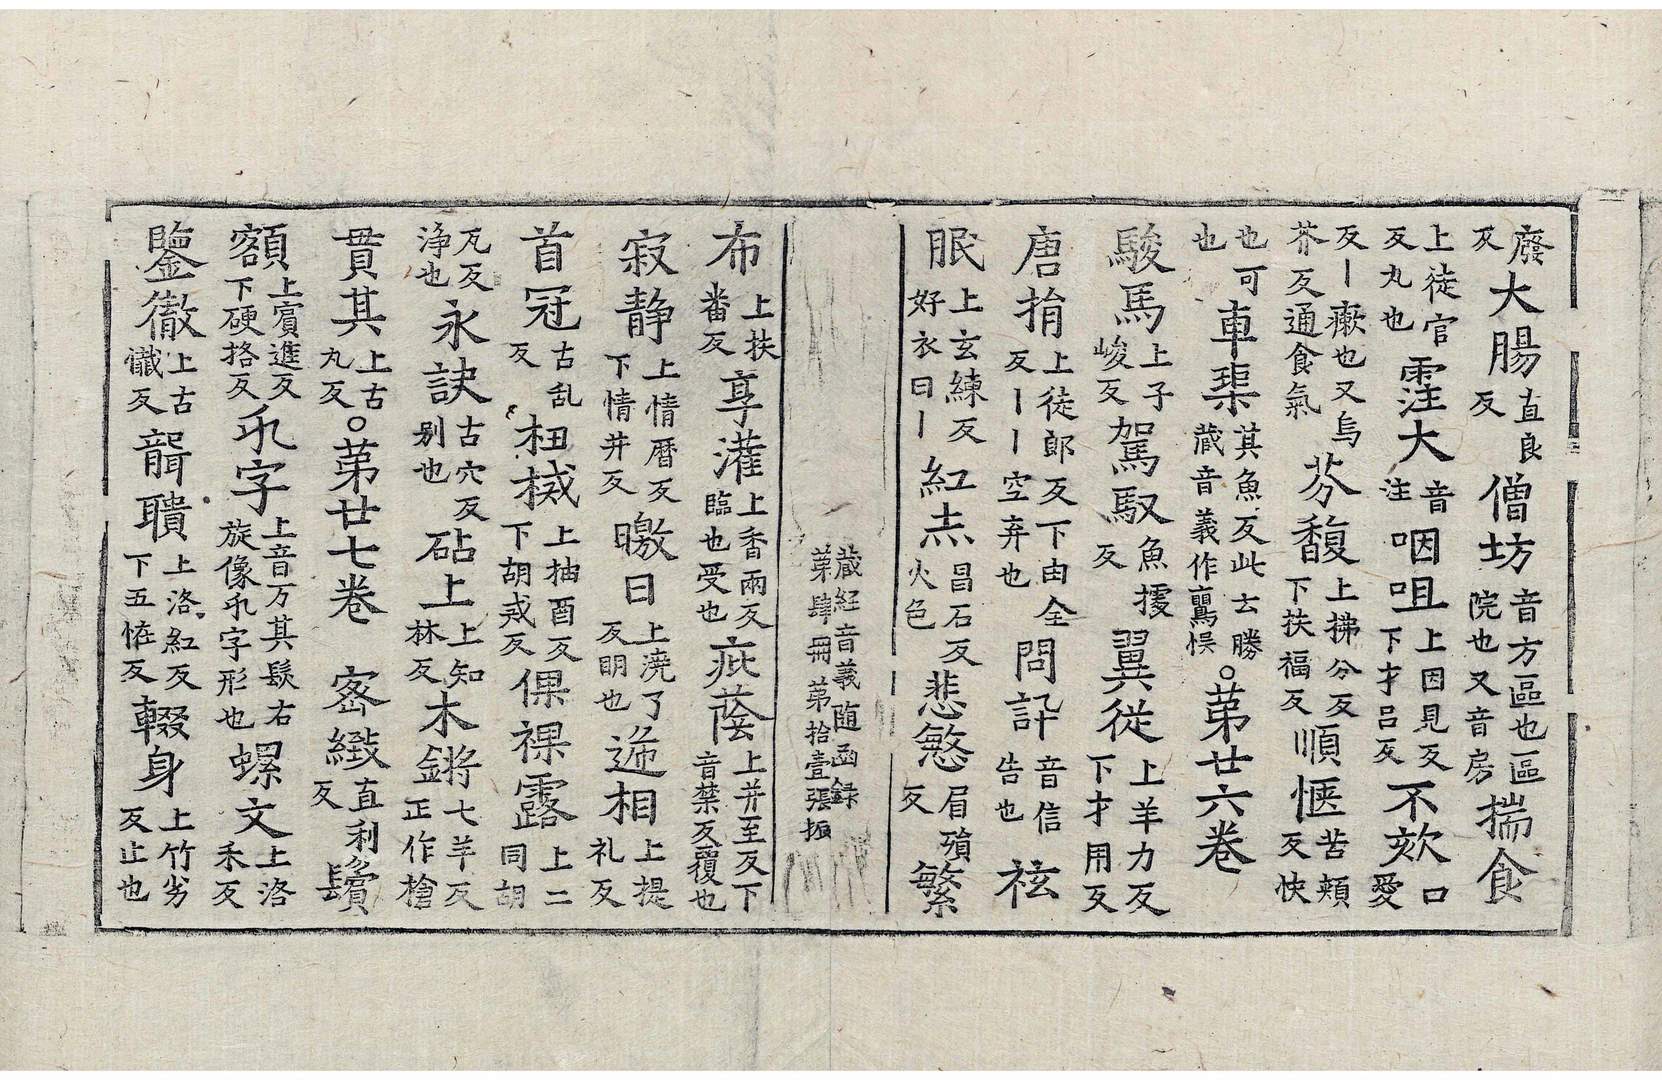 廢反大腸直良反僧坊音方區也區院也又音房揣食
上徒官反丸也霔大音注咽咀上因見反下才吕反不欬口愛
反丨瘶也又烏芥反通食氣芬馥上拂分反下扶福反順愜苦頰反快
也可也車渠其魚反此士勝蔵音義作悮。苐廿六卷
駿馬上子峻反駕馭魚據反翼從上羊力反下才用反
唐捐上徒郎反下由全反丨丨空弃也問訊音信告也袨
眠上玄練反好衣曰丨紅赤昌石反火色悲慜眉殞反繁
蔵経音義随函録苐肆冊苐拾壹張振
布上扶番反享灌上香兩反臨也受也庇蔭上并至反下音禁反覆也
寂静上情曆反下情井反曒日上澆了反明也迤相上提礼反
首冠古乱反杻械上抽酉反下胡戒反倮裸露上二同胡
瓦反浄也永訣古穴反别也砧上上知林反木鏘七羊反正作槍
貫其上古丸反。苐廿七卷 宻緻直利反鬢
額上賓進反下硬挌反卐字上音万其髮右旋像卐字形也螺文上洛禾反
鑒徹上古懺反聾聵上洛紅反下五恠反輟身上竹劣反止也